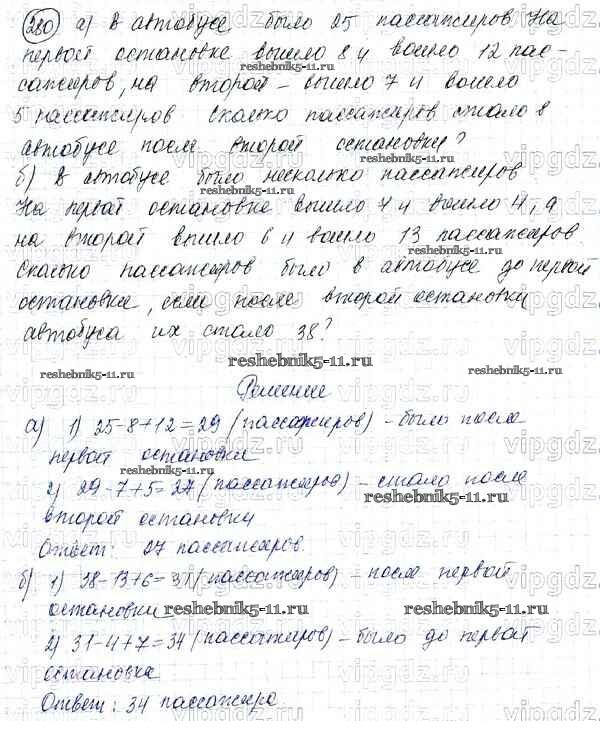 280 а) В автобусе было 25 пассажиров На
первой остановке вышло 8 и вошло 12 пас-
сажиров, на второй - вышло 7 и вошло
5 пассажиров Сколько пассажиров стало в
автобусе после второй остановки?
б) В автобусе было несколько пассажиров
На первой остановке вышло 7 и вошло 4, а
на второй вышло 6 и вошло 13 пассажиров
Сколько пассажиров было в автобусе до первой
остановки, если после второй остановки
автобуса их стало 38?
reshebnik5-11.ru
Решение
а) 1) 25-8+12=29 (пассажиров) - было после
первой остановки
2) 29-7+5=27 (пассажиров) - стало после
второй остановки
Ответ: 27 пассажиров.
б) 1) 38-13+6=31 (пассажиров) - после первой
остановки
2) 31-4+7=34 (пассажиров) - было до первой
остановка
Ответ: 34 пассажира